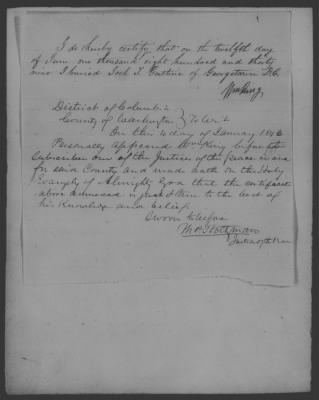 I do hereby certify that on the twelfth day
of June one thousand eight hundred and thirty
nine I buried Jack T. Guthrie of Georgetown D.C.
Wm King
District of Columbia
County of Washington } To Wit
On this 4 day of January 1846
Personally Appeared Wm King before the
Subscriber one of the Justices of the Peace in and
for said County and made oath on the Holy
Evangely of Almighty God that the certificate
above is just & true to the best of
his Knowledge and belief.
Sworn before
Holtzman
Justice of the Peace